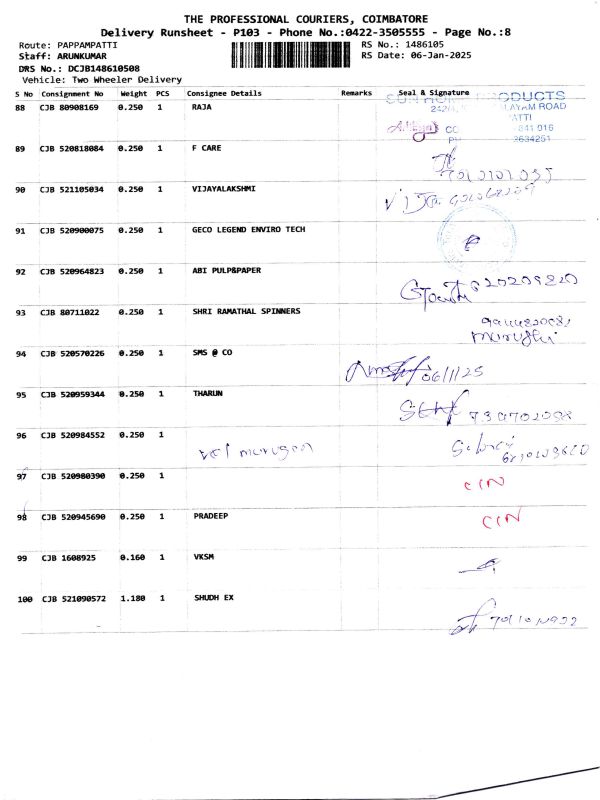 THE PROFESSIONAL COURIERS, COIMBATORE
Delivery Runsheet - P103 - Phone No.:0422-3505555 - Page No.:8
Route: PAPPAMPATTI RS No.: 1486105
Staff: ARUNKUMAR RS Date: 06-Jan-2025
DRS No.: DCJB148610508
Vehicle: Two Wheeler Delivery
S No Consignment No Weight PCS Consignee Details Remarks Seal & Signature
PRODUCTS
88 CJB 80908169 0.250 1 RAJA
ROAD
641 016
2634251
89 CJB 520818084 0.250 1 F CARE
90 CJB 521105034 0.250 1 VIJAYALAKSHMI
91 CJB 520900075 0.250 1 GECO LEGEND ENVIRO TECH
92 CJB 520964823 0.250 1 ABI PULP&PAPER
93 CJB 80711022 0.250 1 SHRI RAMATHAL SPINNERS
94 CJB 520570226 0.250 1 SMS @ CO
06/1/25
95 CJB 520959344 0.250 1 THARUN
96 CJB 520984552 0.250 1
vel murugan
97 CJB 520980390 0.250 1
CIN
98 CJB 520945690 0.250 1 PRADEEP
CIN
99 CJB 1608925 0.160 1 VKSM
100 CJB 521090572 1.180 1 SHUDH EX